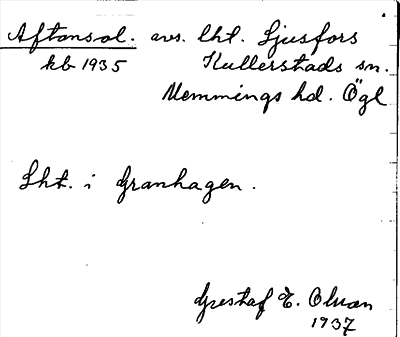 Aftonsol. avs. lht. Ljusfors
kb 1935 Kullerstads sn.
Memmings hd. Ögl
Lht. i Granhagen.
Gustaf E. Olson
1937